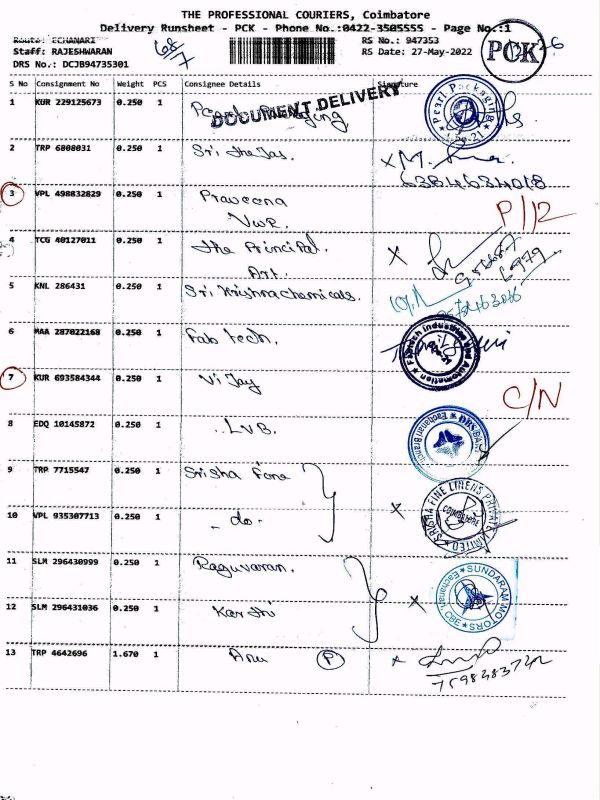 THE PROFESSIONAL COURIERS, Coimbatore
Delivery Runsheet - PCK - Phone No.:0422-3505555 - Page No.:1
Route: ECHANARI
RS No.: 947353
Staff: RAJESHWARAN
RS Date: 27-May-2022
DRS No.: DCJB94735301
68/7
PCK
S No Consignment No Weight PCS Consignee Details Signature
DOCUMENT DELIVERY
1 KUR 229125673 0.250 1 Pearl Packaging
Pearl Packaging
2 TRP 6808031 0.250 1 Sri theJas.
6384684018
3 VPL 498832829 0.250 1 Praveena
VWR.
P/12
4 TCG 40127011 0.250 1 the Principal.
Art.
5 KNL 286431 0.250 1 Sri Krishna chemicals.
6 MAA 287022168 0.250 1 Fab tech.
Fabtech Industries and Automation
7 KUR 693584344 0.250 1 Vijay
C/N
8 EDQ 10145872 0.250 1 LVB.
DBS
Eachanari Branch
9 TRP 7715547 0.250 1 Srisha Fone
10 VPL 935307713 0.250 1 - do -
SRISHA FINE LINENS PRIVATE LIMITED
COIMBATORE
11 SLM 296430999 0.250 1 Raguvaran.
12 SLM 296431036 0.250 1 Karthi
SUNDARAM MOTORS
Eachanari
CBE
13 TRP 4642696 1.670 1 Anu P